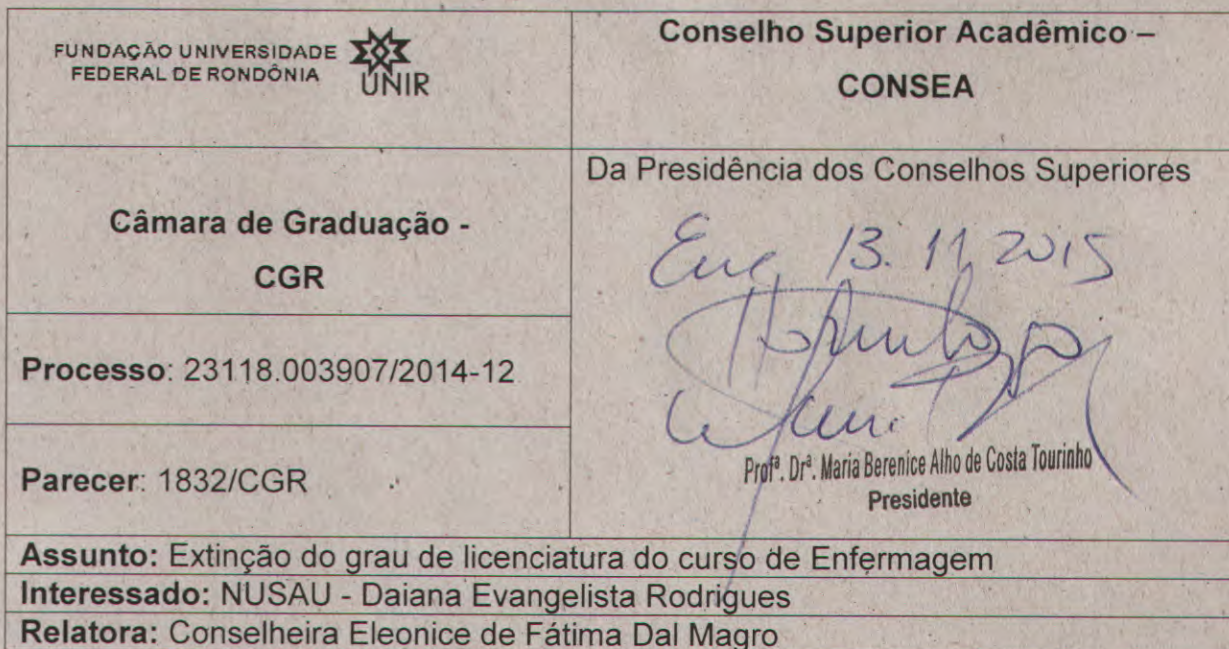 FUNDAÇÃO UNIVERSIDADE
FEDERAL DE RONDÔNIA
UNIR
Conselho Superior Acadêmico –
CONSEA
Câmara de Graduação -
CGR
Da Presidência dos Conselhos Superiores
13.11.2015
Processo: 23118.003907/2014-12
Parecer: 1832/CGR
Profª. Drª. Maria Berenice Alho de Costa Tourinho
Presidente
Assunto: Extinção do grau de licenciatura do curso de Enfermagem
Interessado: NUSAU - Daiana Evangelista Rodrigues
Relatora: Conselheira Eleonice de Fátima Dal Magro